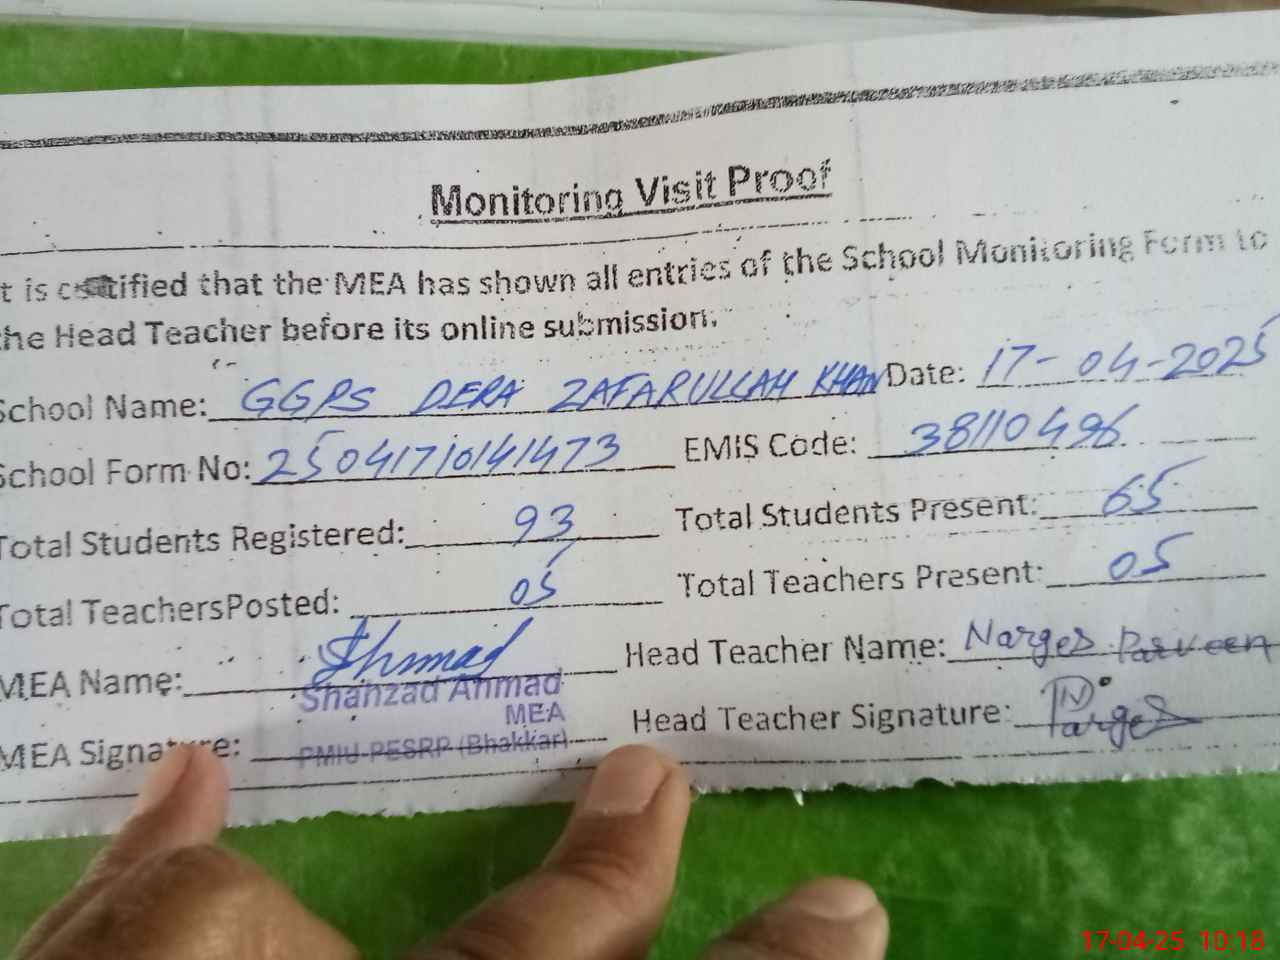 Monitoring Visit Proof
t is certified that the MEA has shown all entries of the School Monitoring Form to
the Head Teacher before its online submission.
School Name: GGPS DERA ZAFARULLAH KHAN Date: 17-04-2025
School Form No: 25041710141473 EMIS Code: 38110496
Total Students Registered: 93 Total Students Present: 65
Total TeachersPosted: 05 Total Teachers Present: 05
MEA Name: Ahmad Head Teacher Name: Narges Parveen
Shahzad Ahmad
MEA
MEA Signature: PMIU-PESRP (Bhakkar) Head Teacher Signature: Narges
17-04-25 10:18